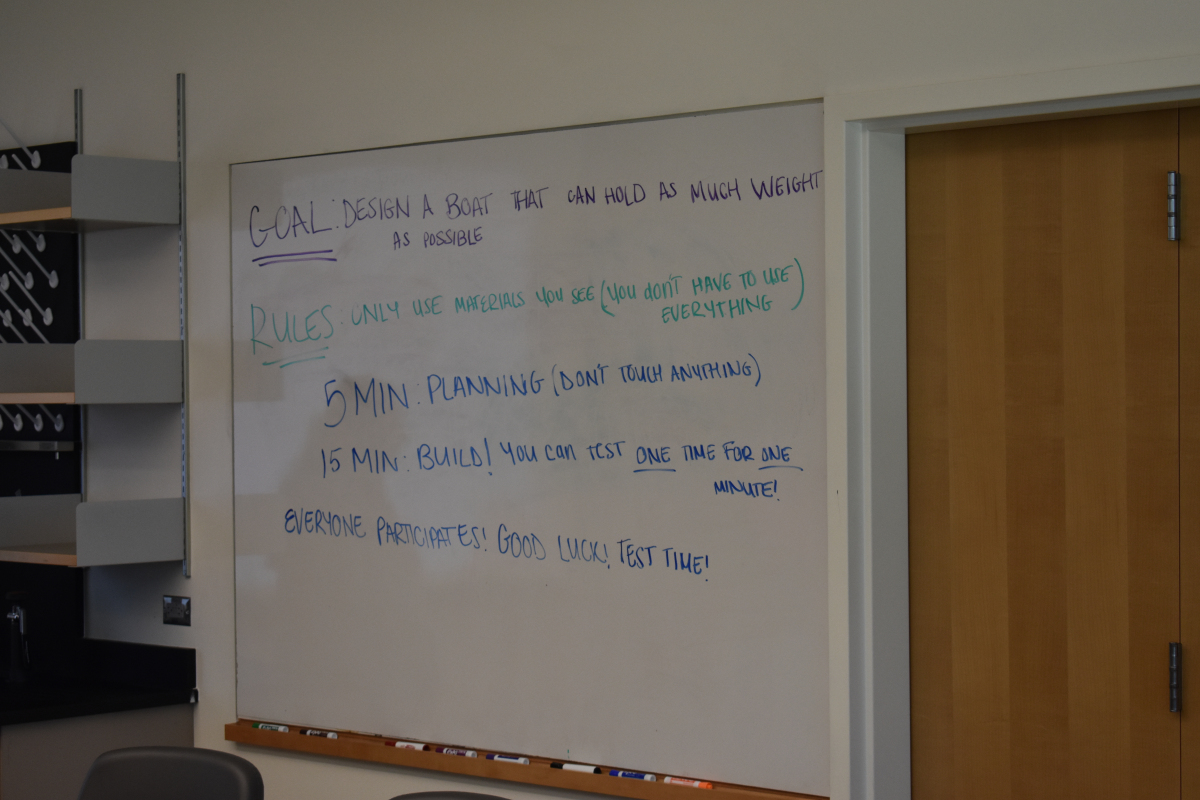 GOAL: DESIGN A BOAT THAT CAN HOLD AS MUCH WEIGHT
AS POSSIBLE
RULES: ONLY USE MATERIALS YOU SEE (YOU DON'T HAVE TO USE
EVERYTHING)
5 MIN: PLANNING (DON'T TOUCH ANYTHING)
15 MIN: BUILD! YOU CAN TEST ONE TIME FOR ONE
MINUTE!
EVERYONE PARTICIPATES! GOOD LUCK! TEST TIME!